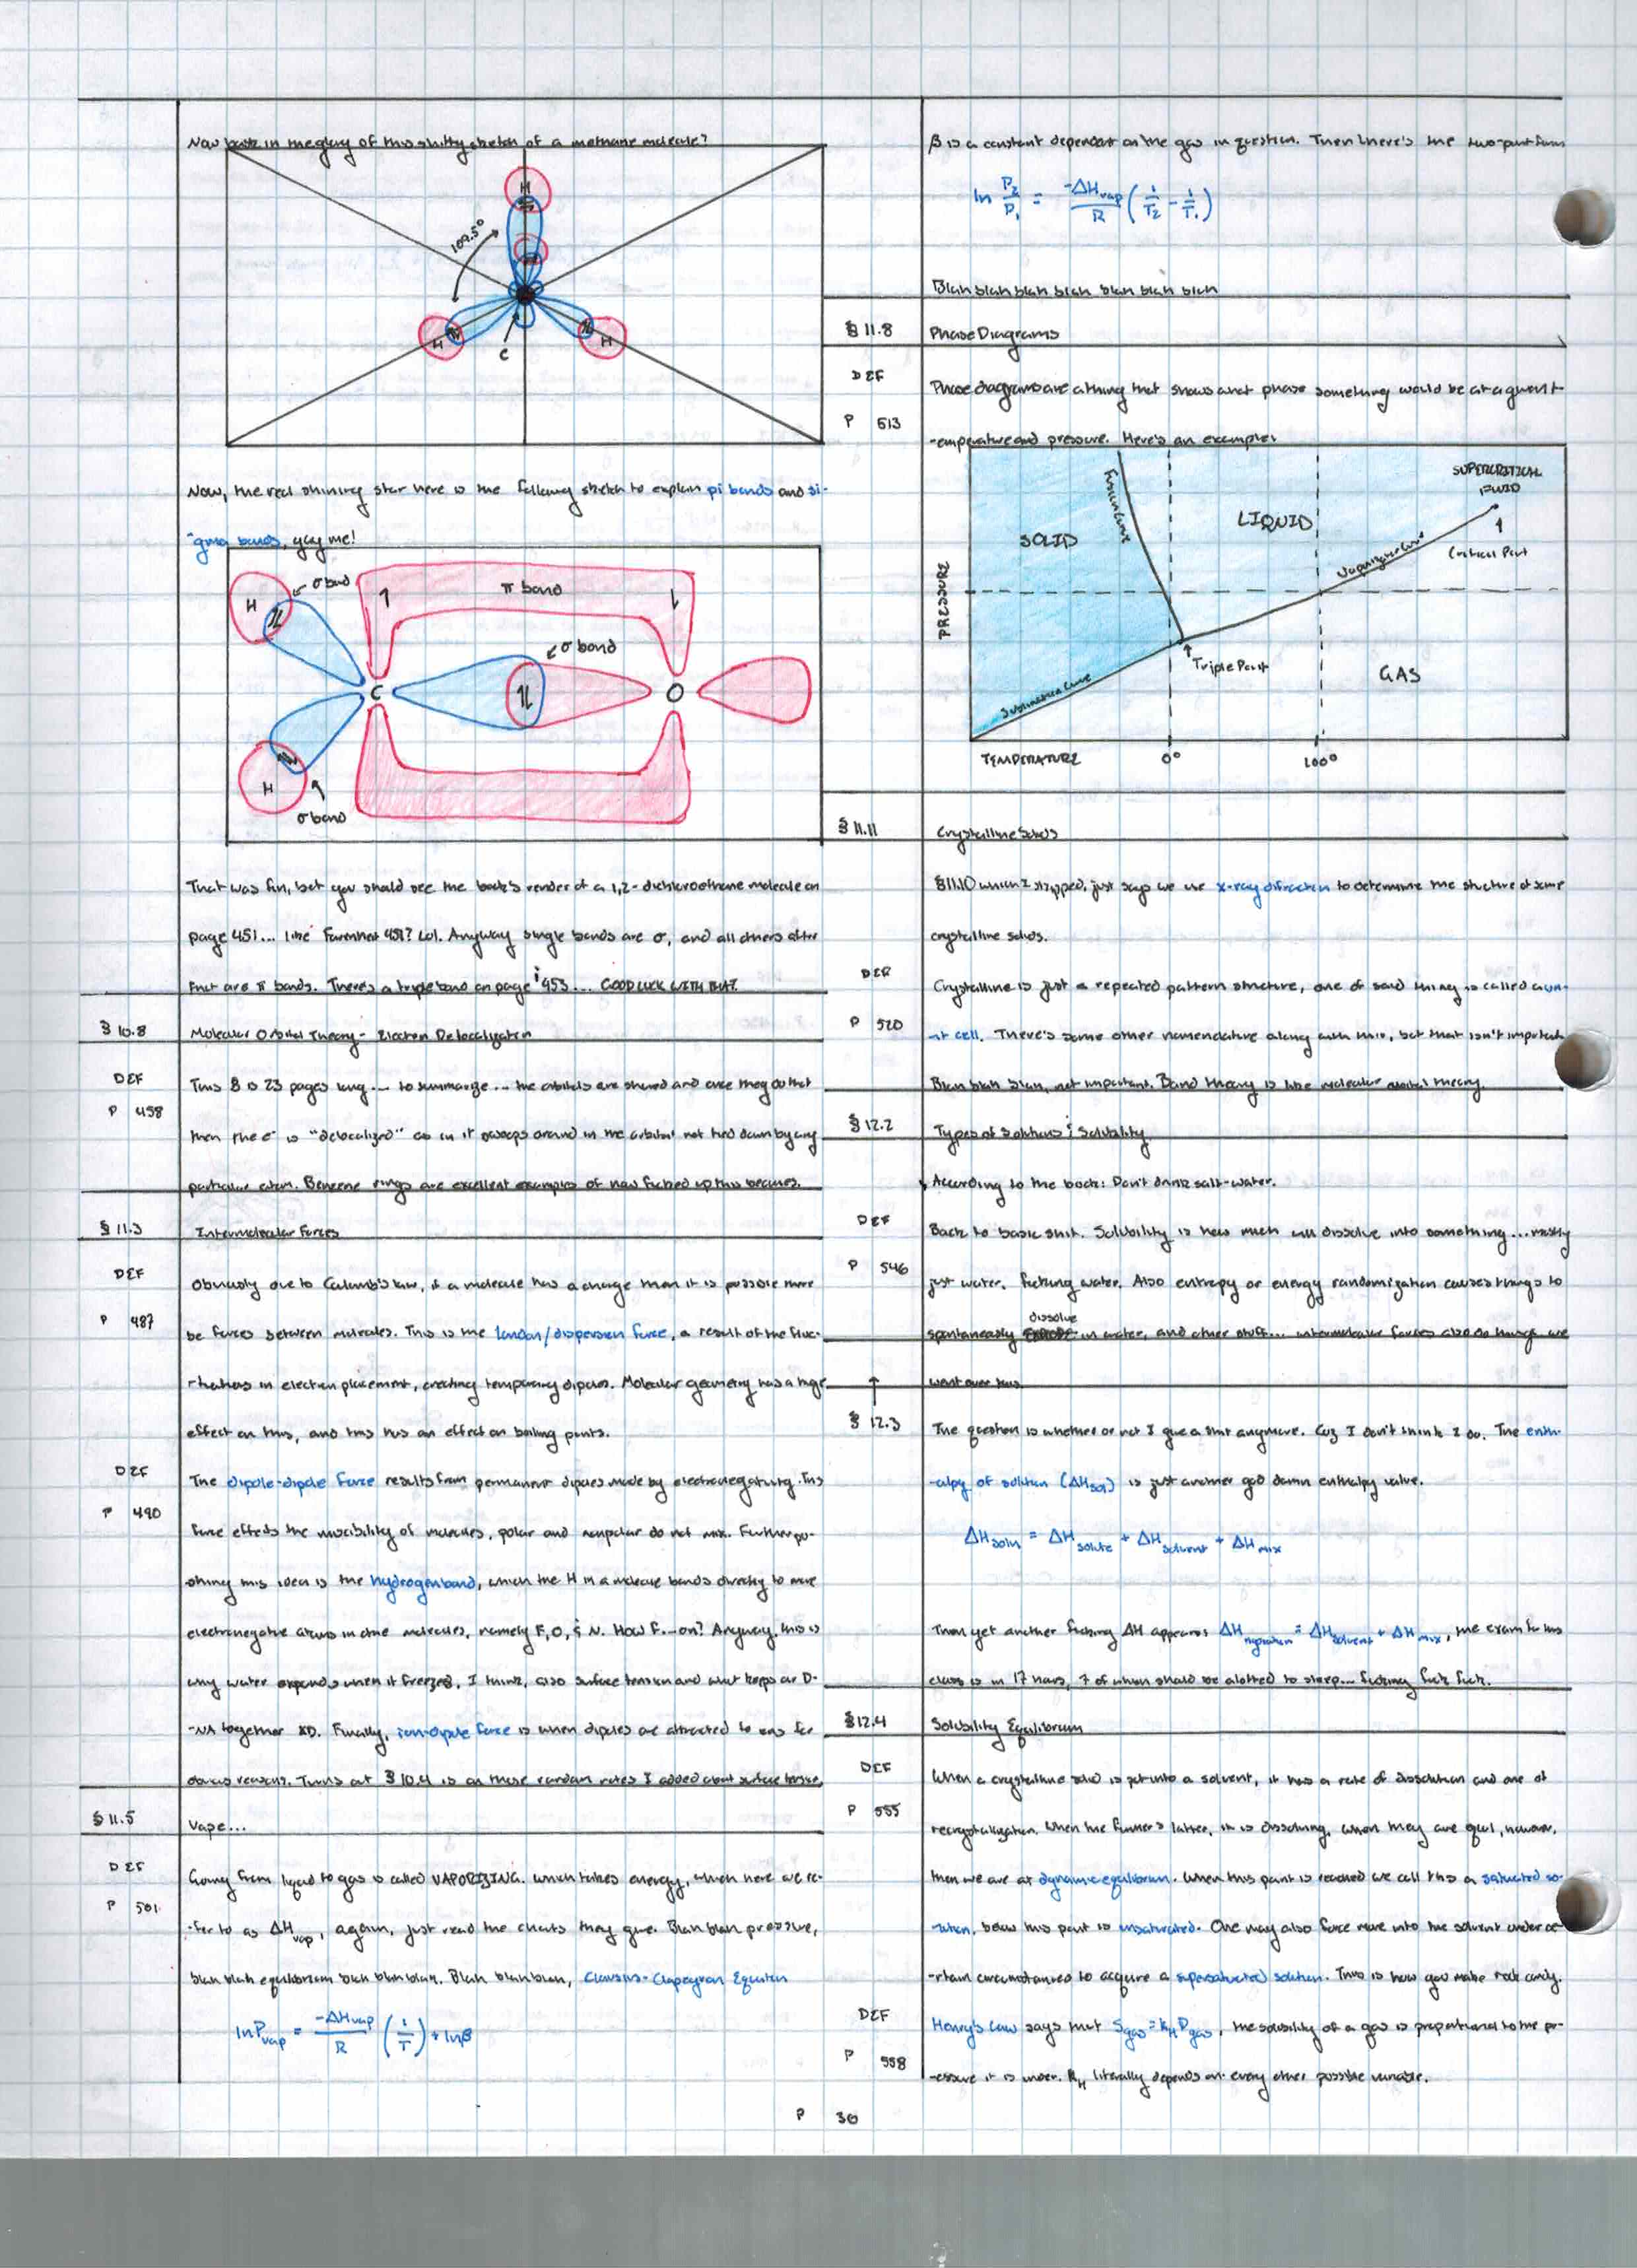 Now bask in the glory of this shitty sketch of a methane molecule?
H
109.5°
H
H
C
Now, the real shining star here is the following sketch to explain pi bonds and si-
-gma bonds, yay me!
H
σ bond
π bond
σ bond
C
O
H
σ bond
That was fun, but you should see the book's render of a 1,2-dichloroethane molecule on
page 451... like Farenheit 451? Lol. Anyway single bonds are σ, and all others after
that are π bonds. There's a triple bond on page 453... GOOD LUCK WITH THAT.
§ 10.8 Molecular Orbital Theory - Electron Delocalization
DEF This § is 23 pages long... to summarize... the orbitals are shared and once they do that
P 458
then the e⁻ is "delocalized" as in it swoops around in the orbital not tied down by any
particular atom. Benzene rings are excellent examples of how fucked up this becomes.
§ 11.3 Intermolecular Forces
DEF Obviously due to Culumb's law, if a molecule has a charge then it is possible there
P 487 be forces between molecules. This is the london/dispersion force, a result of the fluc-
-tuations in electron placement, creating temporary dipoles. Molecular geometry has a huge
effect on this, and this has an effect on boiling points.
DEF The dipole-dipole force results from permanent dipoles made by electronegativity. This
P 490 force effects the miscibility of molecules, polar and nonpolar do not mix. Further pu-
-shing this idea is the hydrogen bond, which the H in a molecule bonds directly to more
electronegative atoms in other molecules, namely F, O, & N. How F--on? Anyway, this is
why water expands when it freezes, I think, also surface tension and what keeps our D-
-NA together XD. Finally, ion-dipole force is when dipoles are attracted to ions for
obvious reasons. Turns out § 10.4 is on these random notes I added about surface tension.
§ 11.5 Vape...
DEF Going from liquid to gas is called VAPORIZING. which takes energy, which here we re-
P 501 -fer to as ΔH vap, again, just read the charts they give. Blah blah pressure,
blah blah equilibrium blah blah blah. Blah blah blah, Clausius-Clapeyron Equation
ln P vap = -ΔH vap / R (1/T) + ln β
β is a constant dependent on the gas in question. Then there's the two-point form
ln P₂/P₁ = -ΔH vap / R (1/T₂ - 1/T₁)
Blah blah blah blah blah blah blah
§ 11.8 Phase Diagrams
DEF Phase diagrams are a thing that shows what phase something would be at a given t-
P 513
-emperature and pressure. Here's an example:
SUPERCRITICAL
FLUID
Fusion Curve
LIQUID
SOLID
Vaporization Curve
Critical Point
PRESSURE
Triple Point
GAS
Sublimation Curve
TEMPERATURE 0° 100°
§ 11.11 Crystalline Solids
§11.10 which I skipped, just says we use x-ray difraction to determine the structure of some
crystalline solids.
DEF Crystalline is just a repeated pattern structure, one of said thing is called a un-
P 520 -it cell. There's some other nomenclature along with this, but that isn't important
Blah blah blah, not important. Band theory is like molecular orbital theory.
§ 12.2 Types of Solutions & Solubility
According to the book: Don't drink salt-water.
DEF Back to basic shit. Solubility is how much will dissolve into something... mostly
P 546 just water. fucking water. Also entropy or energy randomization causes things to
dissolve
spontaneously in water, and other stuff... intermolecular forces also do things we
went over this
§ 12.3 The question is whether or not I give a shit anymore. Cuz I don't think I do. The enth-
-alpy of solution (ΔH sol) is just another god damn enthalpy value.
ΔH soln = ΔH solute + ΔH solvent + ΔH mix
Then yet another fucking ΔH appears ΔH hydration = ΔH solvent + ΔH mix, the exam for this
class is in 17 hours, 7 of which should be alotted to sleep... fucking fuck fuck.
§12.4 Solubility Equilibrium
DEF When a crystalline solid is put into a solvent, it has a rate of dissolution and one of
P 555 recrystallization. When the former > latter, it is dissolving. when they are equal, however,
then we are at dynamic equilibrium. When this point is reached we call this a saturated so-
-lution, below this point is unsaturated. One may also force more into the solvent under ce-
-rtain circumstances to acquire a supersaturated solution. This is how you make rock candy.
DEF Henry's Law says that S gas = k H P gas, the solubility of a gas is proportional to the pr-
P 558
-essure it is under. k H literally depends on every other possible variable.
P 30